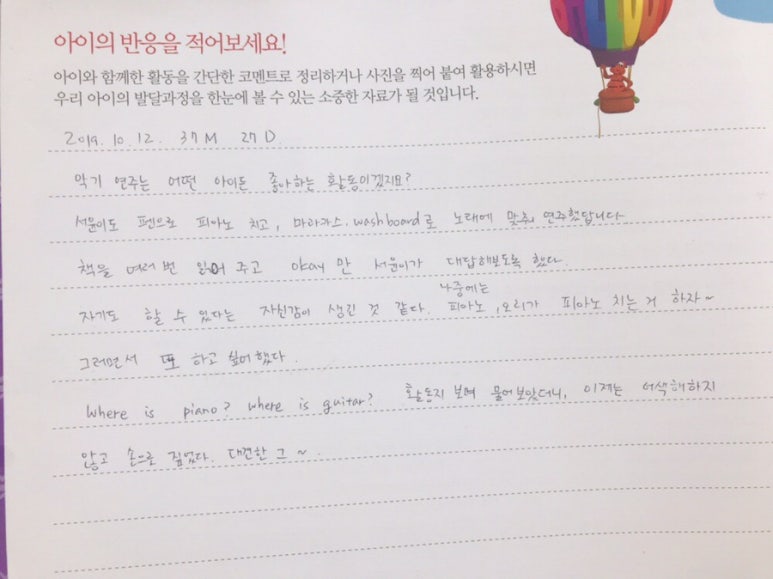 아이의 반응을 적어보세요!
아이와 함께한 활동을 간단한 코멘트로 정리하거나 사진을 찍어 붙여 활용하시면
우리 아이의 발달과정을 한눈에 볼 수 있는 소중한 자료가 될 것입니다.
2019. 10. 12. 37M 27D
악기 연주는 어떤 아이든 좋아하는 활동이겠지요?
서윤이도 펜으로 피아노 치고, 마라카스, washboard로 노래에 맞춰 연주했답니다
책을 여러 번 읽어 주고 okay 만 서윤이가 대답해보도록 했다.
나중에는
자기도 할 수 있다는 자신감이 생긴 것 같다. 피아노, 오리가 피아노 치는 거 하자~
그러면서 또 하고 싶어했다.
Where is piano? where is guitar? 활동지 보며 물어보았더니, 이제는 어색해하지
않고 손으로 짚었다. 대견한 그~